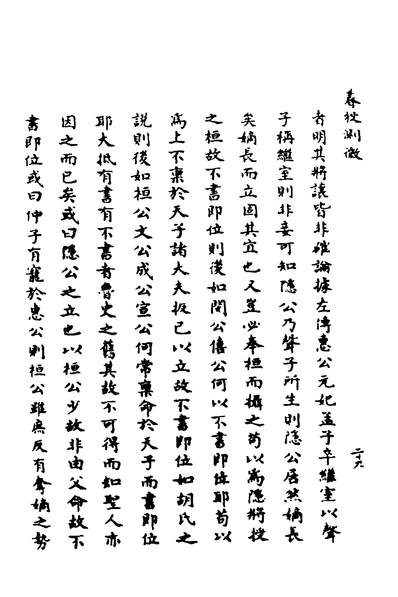 春秋測微
者明其將讓皆非確論據左傳惠公元妃孟子卒繼室以聲
子稱繼室則非妾可知隱公乃聲子所生則隱公居然嫡長
矣嫡長而立固其宜也又豈必奉桓而攝之苟以為隱將授
之桓故不書即位則後如閔公僖公何以不書即位耶苟以
為上不稟於天子諸大夫扳已以立故不書即位如胡氏之
說則後如桓公文公成公宣公何常稟命於天子而書即位
耶大抵有書有不書者魯史之舊其故不可得而知聖人亦
因之而已矣或曰隱公之立也以桓公少故非由父命故不
書即位或曰仲子有寵於惠公則桓公雖庶反有奪嫡之勢
二十九